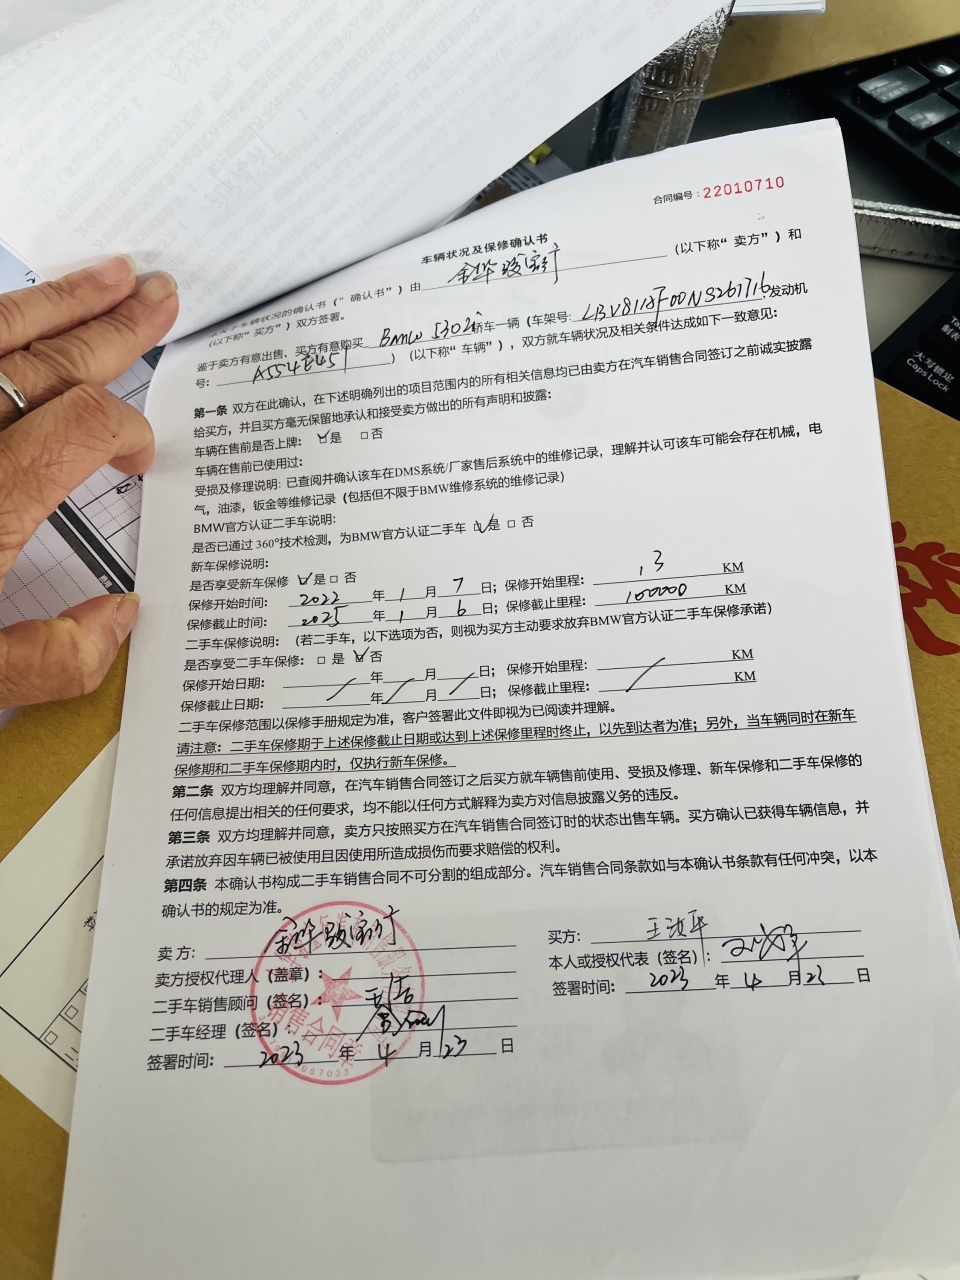 合同编号：22010710
车辆状况及保修确认书
车辆状况的确认书（“确认书”）由 金华骏宝行 （以下称“卖方”）和
（以下称“买方”）双方签署。
鉴于卖方有意出售、买方有意购买 BMW 530Li 轿车一辆（车架号: 发动机
号: ）（以下称“车辆”），双方就车辆状况及相关条件达成如下一致意见：
第一条 双方在此确认，在下述明确列出的项目范围内的所有相关信息均已由卖方在汽车销售合同签订之前诚实披露
给买方，并且买方毫无保留地承认和接受卖方做出的所有声明和披露：
车辆在售前是否上牌： ☑是 □否
车辆在售前已使用过：
受损及修理说明: 已查阅并确认该车在DMS系统/厂家售后系统中的维修记录，理解并认可该车可能会存在机械，电
气，油漆，钣金等维修记录（包括但不限于BMW维修系统的维修记录）
BMW官方认证二手车说明:
是否已通过 360°技术检测，为BMW官方认证二手车 ☑是 □ 否
新车保修说明:
是否享受新车保修 ☑是 □ 否
保修开始时间： 2022 年 1 月 7 日；保修开始里程： 13 KM
保修截止时间： 2025 年 1 月 6 日；保修截止里程： 100000 KM
二手车保修说明：（若二手车，以下选项为否，则视为买方主动要求放弃BMW官方认证二手车保修承诺）
是否享受二手车保修： □ 是 ☑否
保修开始日期： 年 月 日；保修开始里程： KM
保修截止日期： 年 月 日；保修截止里程： KM
二手车保修范围以保修手册规定为准，客户签署此文件即视为已阅读并理解。
请注意：二手车保修期于上述保修截止日期或达到上述保修里程时终止，以先到达者为准；另外，当车辆同时在新车
保修期和二手车保修期内时，仅执行新车保修。
第二条 双方均理解并同意，在汽车销售合同签订之后买方就车辆售前使用、受损及修理、新车保修和二手车保修的
任何信息提出相关的任何要求，均不能以任何方式解释为卖方对信息披露义务的违反。
第三条 双方均理解并同意，卖方只按照买方在汽车销售合同签订时的状态出售车辆。买方确认已获得车辆信息，并
承诺放弃因车辆已被使用且因使用所造成损伤而要求赔偿的权利。
第四条 本确认书构成二手车销售合同不可分割的组成部分。汽车销售合同条款如与本确认书条款有任何冲突，以本
确认书的规定为准。
卖 方： 金华骏宝行
卖方授权代理人（盖章）：
二手车销售顾问（签名）：
二手车经理（签名）：
签署时间： 2023 年 4 月 23 日
销售合同章
买方：
本人或授权代表（签名）：
签署时间： 2023 年 4 月 23 日
大写锁定
Caps Lock